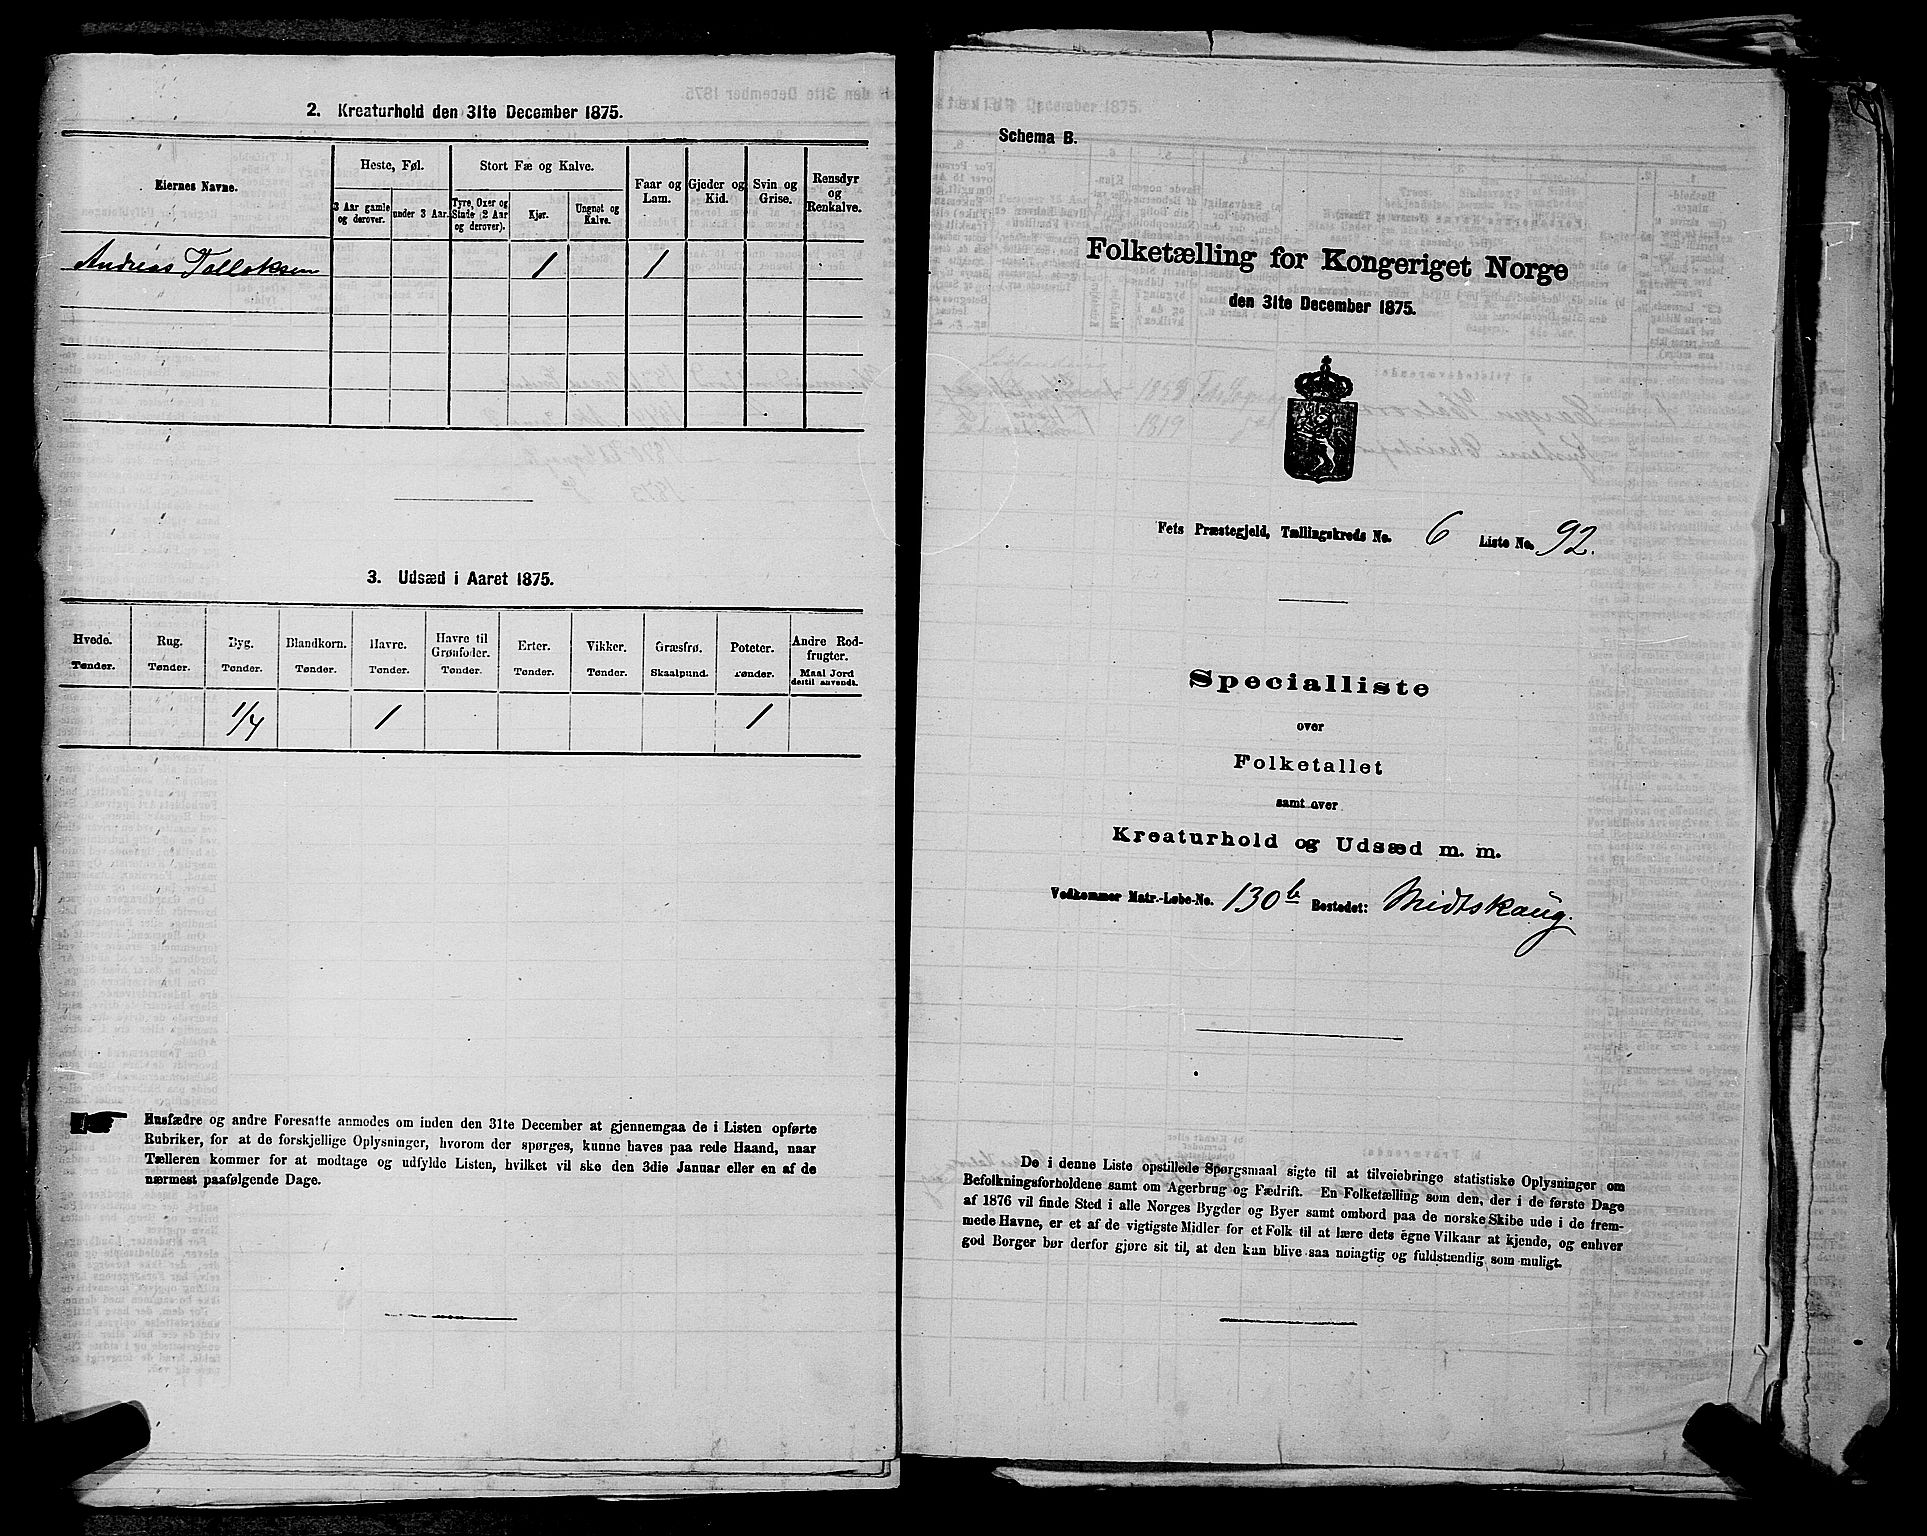 2. Kreaturhold den 31te December 1875.
Eiernes Navne.
Heste, Føl.
Stort Fæ og Kalve.
Faar og Lam.
Gjeder og Kid.
Svin og Grise.
Rensdyr og Renkalve.
3 Aar gamle og derover.
under 3 Aar.
Tyre, Oxer og Stude (2 Aar og derover).
Kjør.
Ungnøt og Kalve.
Andreas Tolleksen 1 1
3. Udsæd i Aaret 1875.
Hvede. Rug. Byg. Blandkorn. Havre. Havre til Grønfoder. Erter. Vikker. Græsfrø. Poteter. Andre Rodfrugter.
Tønder. Tønder. Tønder. Tønder. Tønder. Tønder. Tønder. Tønder. Skaalpund. Tønder. Maal Jord dertil anvendt.
1/4 1 1
Husfædre og andre Foresatte anmodes om inden den 31te December at gjennemgaa de i Listen opførte
Rubriker, for at de forskjellige Oplysninger, hvorom der spørges, kunne haves paa rede Haand, naar
Tælleren kommer for at modtage og udfylde Listen, hvilket vil ske den 3die Januar eller en af de
nærmest paafølgende Dage.
Schema B.
Folketælling for Kongeriget Norge
den 31te December 1875.
Fets Præstegjeld, Tællingskreds No. 6 Liste No. 92.
Specialliste
over
Folketallet
samt over
Kreaturhold og Udsæd m. m.
Vedkommer Matr.-Løbe-No. 130b Bostedet: Midtskaug.
De i denne Liste opstillede Spørgsmaal sigte til at tilveiebringe statistiske Oplysninger om
Befolkningsforholdene samt om Agerbrug og Fædrift. En Folketælling som den, der i de første Dage
af 1876 vil finde Sted i alle Norges Bygder og Byer samt ombord paa de norske Skibe ude i de frem-
mede Havne, er et af de vigtigste Midler for et Folk til at lære dets egne Vilkaar at kjende, og enhver
god Borger bør derfor gjøre sit til, at den kan blive saa nøiagtig og fuldstændig som muligt.